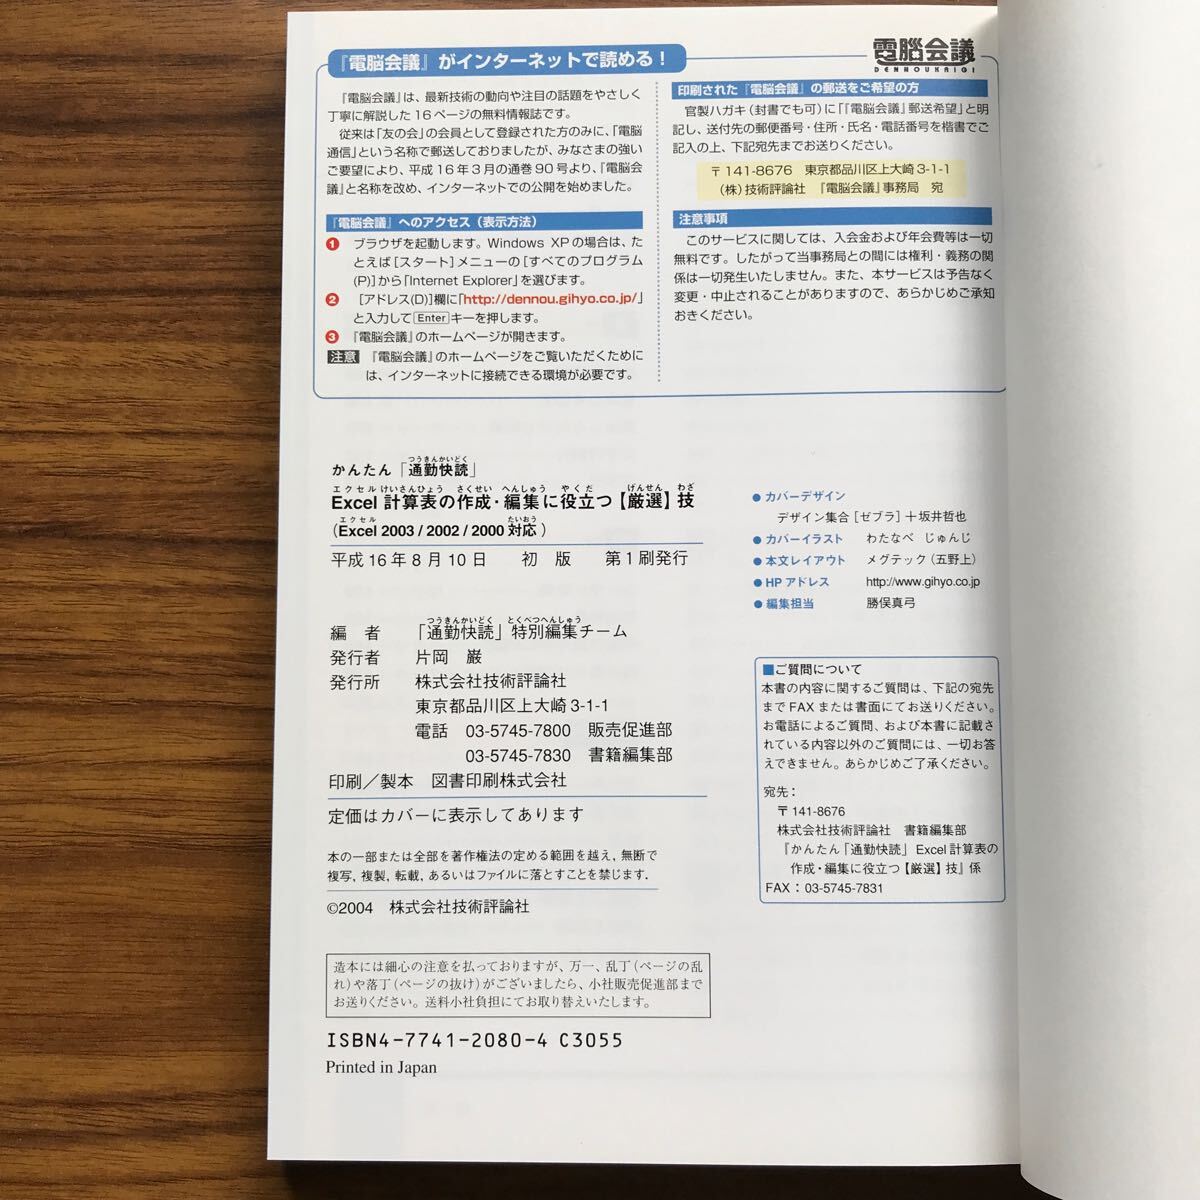 『電脳会議』がインターネットで読める！
電脳会議
DENNOUKAIGI
『電脳会議』は、最新技術の動向や注目の話題をやさしく
丁寧に解説した16ページの無料情報誌です。
従来は「友の会」の会員として登録された方のみに、「電脳
通信」という名称で郵送しておりましたが、みなさまの強い
ご要望により、平成16年3月の通巻90号より、『電脳会
議』と名称を改め、インターネットでの公開を始めました。
『電脳会議』へのアクセス（表示方法）
1 ブラウザを起動します。Windows XPの場合は、た
とえば[スタート]メニューの[すべてのプログラム
(P)]から「Internet Explorer」を選びます。
2 [アドレス(D)]欄に「http://dennou.gihyo.co.jp/」
と入力して Enter キーを押します。
3 『電脳会議』のホームページが開きます。
注意 『電脳会議』のホームページをご覧いただくために
は、インターネットに接続できる環境が必要です。
印刷された『電脳会議』の郵送をご希望の方
官製ハガキ（封書でも可）に「『電脳会議』郵送希望」と明
記し、送付先の郵便番号・住所・氏名・電話番号を楷書でご
記入の上、下記宛先までお送りください。
〒141-8676 東京都品川区上大崎3-1-1
（株）技術評論社 『電脳会議』事務局 宛
注意事項
このサービスに関しては、入会金および年会費等は一切
無料です。したがって当事務局との間には権利・義務の関
係は一切発生いたしません。また、本サービスは予告なく
変更・中止されることがありますので、あらかじめご承知
おきください。
つうきんかいどく
かんたん「通勤快読」
エクセル けいさんひょう さくせい へんしゅう やくだ げんせん わざ
Excel 計算表の作成・編集に役立つ【厳選】技
エクセル たいおう
（Excel 2003 / 2002 / 2000 対応）
平成16年8月10日 初 版 第1刷発行
つうきんかいどく とくべつへんしゅう
編 者 「通勤快読」特別編集チーム
発行者 片岡 巌
発行所 株式会社技術評論社
東京都品川区上大崎3-1-1
電話 03-5745-7800 販売促進部
03-5745-7830 書籍編集部
印刷／製本 図書印刷株式会社
定価はカバーに表示してあります
本の一部または全部を著作権法の定める範囲を越え，無断で
複写，複製，転載，あるいはファイルに落とすことを禁じます．
©2004 株式会社技術評論社
造本には細心の注意を払っておりますが、万一、乱丁（ページの乱
れ）や落丁（ページの抜け）がございましたら、小社販売促進部まで
お送りください。送料小社負担にてお取り替えいたします。
ISBN4-7741-2080-4 C3055
Printed in Japan
● カバーデザイン
デザイン集合［ゼブラ］＋坂井哲也
● カバーイラスト わたなべ じゅんじ
● 本文レイアウト メグテック（五野上）
● HPアドレス http://www.gihyo.co.jp
● 編集担当 勝俣真弓
■ご質問について
本書の内容に関するご質問は、下記の宛先
までFAXまたは書面にてお送りください。
お電話によるご質問、および本書に記載さ
れている内容以外のご質問には、一切お答
えできません。あらかじめご了承ください。
宛先：
〒141-8676
株式会社技術評論社 書籍編集部
『かんたん「通勤快読」Excel計算表の
作成・編集に役立つ【厳選】技』係
FAX：03-5745-7831